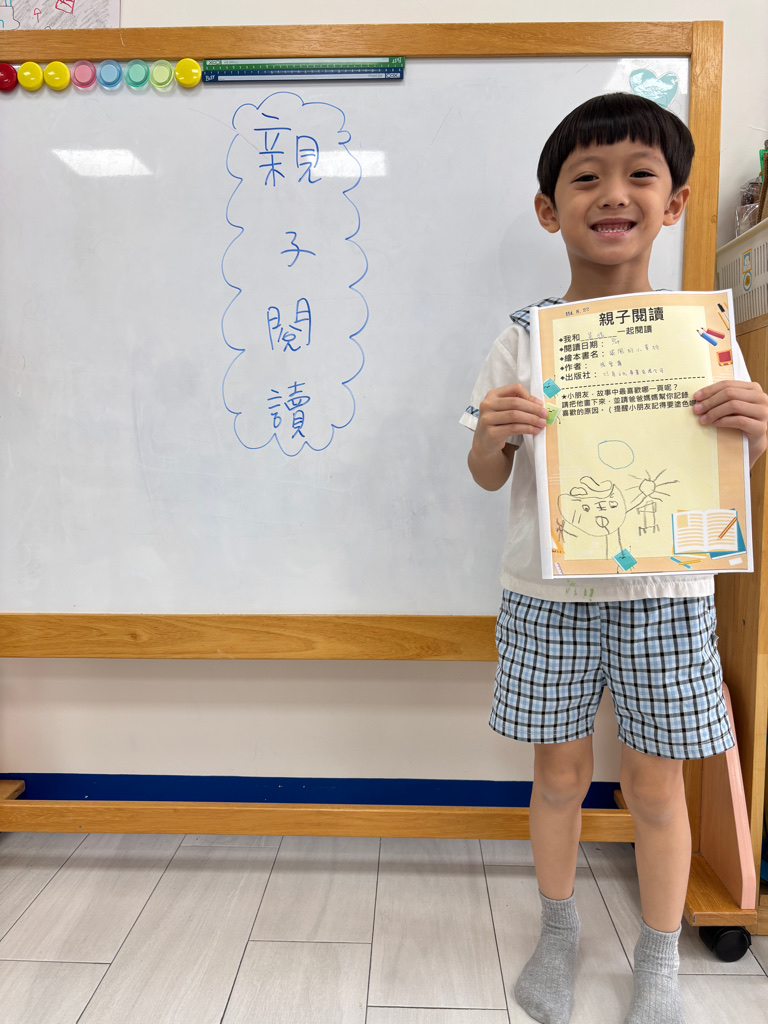 親
子
閱
讀
親子閱讀
◆我和 一起閱讀
◆閱讀日期：
◆繪本書名： 小
◆作者：
◆出版社：
★小朋友，故事中最喜歡哪一頁呢？
請把他畫下來，並請爸爸媽媽幫你記錄
喜歡的原因。（提醒小朋友記得要塗色